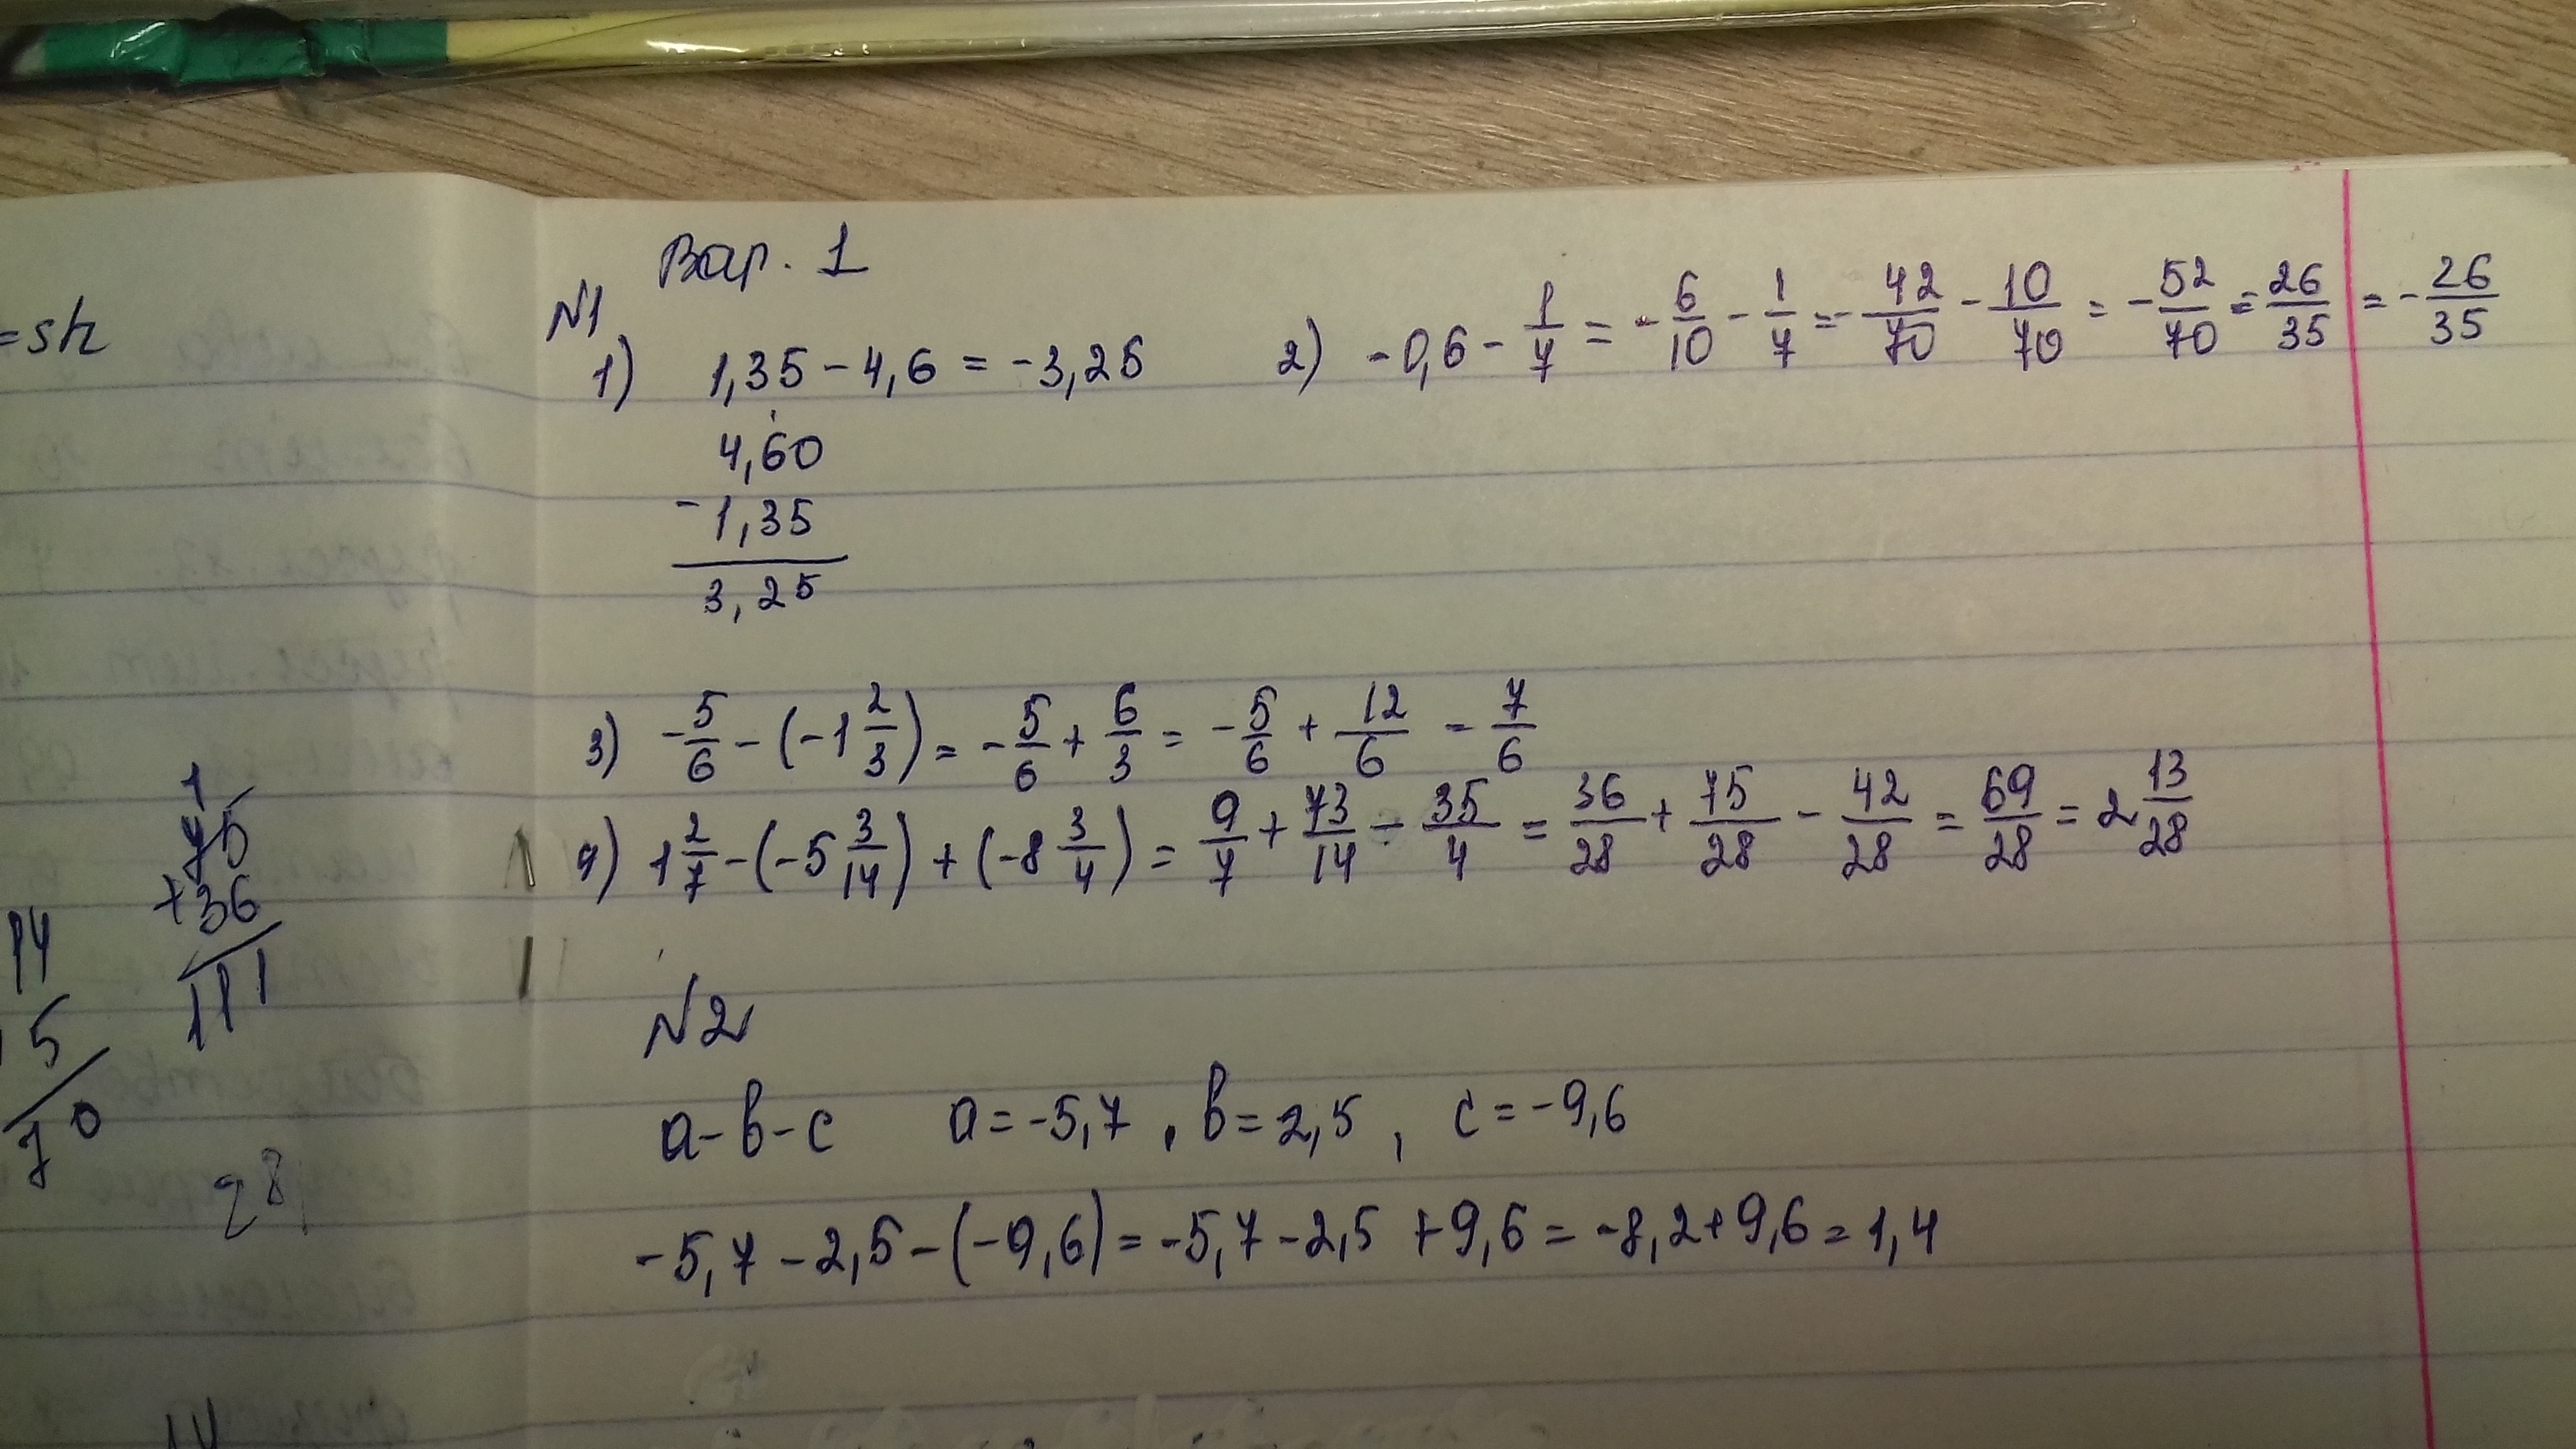 Вар. 1
№1
1) 1,35 - 4,6 = -3,25 2) -0,6 - 1/7 = -6/10 - 1/7 = -42/70 - 10/70 = -52/70 = 26/35 = -26/35
4,60
- 1,35
3,25
3) -5/6 - (-1 2/3) = -5/6 + 6/3 = -5/6 + 12/6 = 7/6
4) 1 2/7 - (-5 3/14) + (-8 3/4) = 9/7 + 73/14 - 35/4 = 36/28 + 75/28 - 42/28 = 69/28 = 2 13/28
№2
a-b-c a = -5,7, b = 2,5, c = -9,6
-5,7 - 2,5 - (-9,6) = -5,7 - 2,5 + 9,6 = -8,2 + 9,6 = 1,4
1
75
+36
111
14
5
70
28